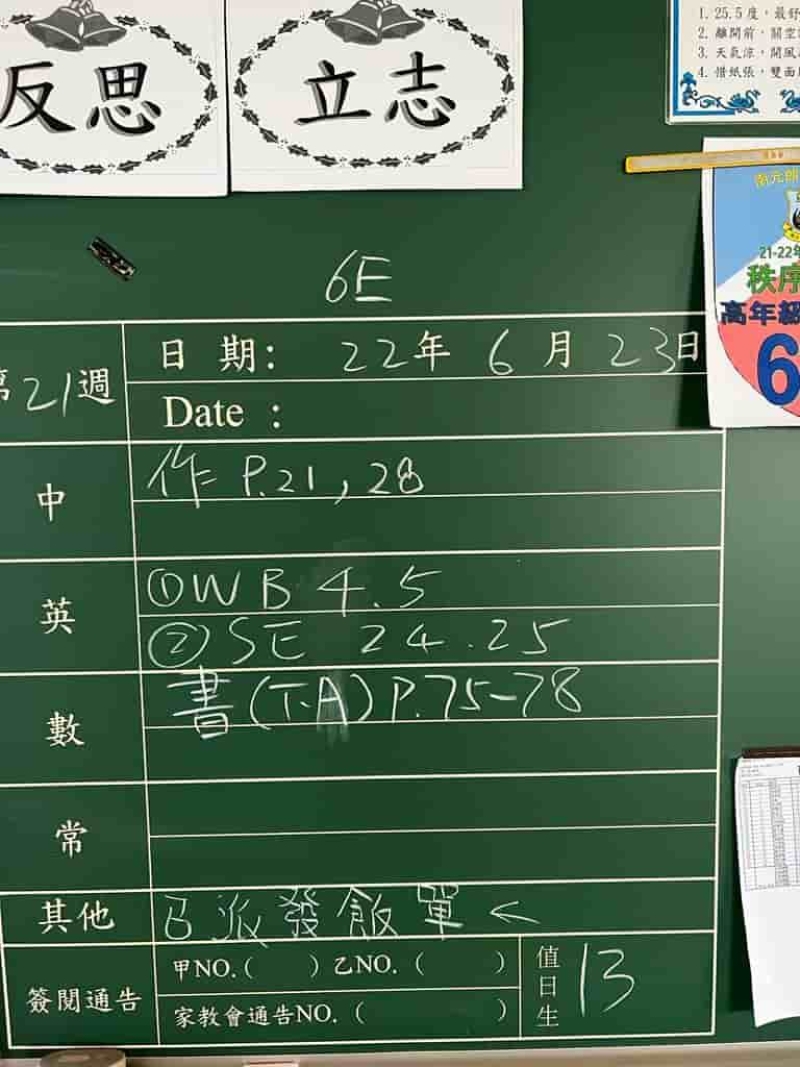 反思
立志
1. 25.5度，最舒
2. 離開前，關空
3. 天氣涼，開風
4. 借紙張，雙面
南元朗
21-22年
秩序
高年級
6
6E
第21週
日期： 22年 6月 23日
Date ：
中
作 P.21, 28
英
①WB 4.5
②SE 24.25
數
書(T.A) P.75-78
常
其他
已派發飯單 ←
簽閱通告
甲NO.( ) 乙NO.( )
家教會通告NO.( )
值日生 13